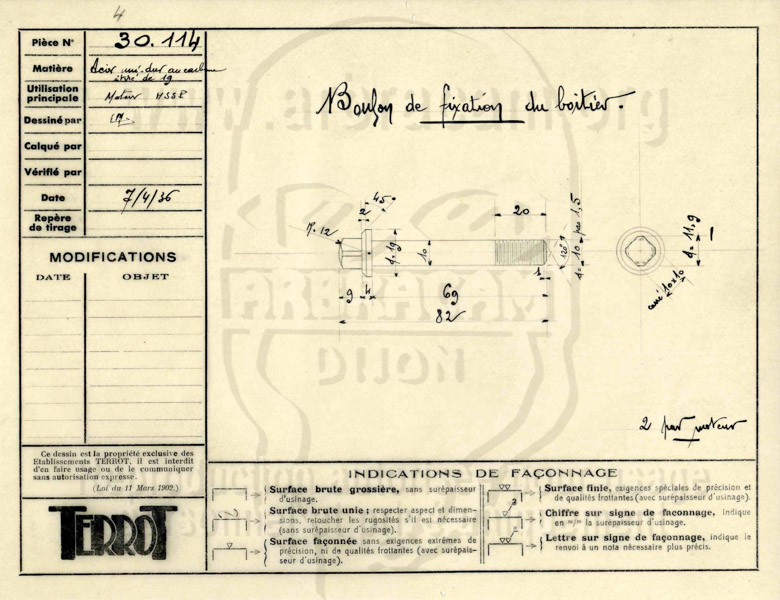 4
Pièce N° 30.114
Matière Acier mi-dur au carbone
étiré de 19
Utilisation principale Moteur HSSE
Dessiné par
Calqué par
Vérifié par
Date 7/4/36
Repère de tirage
MODIFICATIONS
DATE OBJET
Ce dessin est la propriété exclusive des
Etablissements TERROT, il est interdit
d'en faire usage ou de le communiquer
sans autorisation expresse.
(Loi du 11 Mars 1902.)
TERROT
Boulon de fixation du boîtier.
45°
2
R. 12
d=19
10
20
120°
d= 10 pas 1,5
1
9
4
69
82
d= 11,9
carré 10x10
2 par moteur
www.arbracam.org
ARBRACAM
DIJON
INDICATIONS DE FAÇONNAGE
Surface brute grossière, sans surépaisseur
d'usinage.
Surface brute unie; respecter aspect et dimen-
sions, retoucher les rugosités s'il est nécessaire
(sans surépaisseur d'usinage).
Surface façonnée sans exigences extrêmes de
précision, ni de qualités frottantes (avec surépais-
seur d'usinage).
Surface finie, exigences spéciales de précision et
de qualités frottantes (avec surépaisseur d'usinage).
Chiffre sur signe de faconnage, indique
en m/m la surépaisseur d'usinage.
Lettre sur signe de façonnage, indique le
renvoi à un nota nécessaire plus précis.